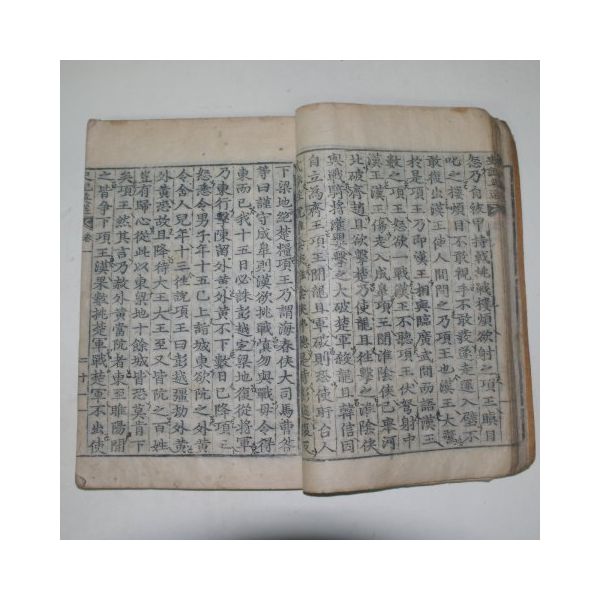 怒乃自被甲持戟挑戰樓煩欲射之項王瞋目
叱之樓煩目不敢視手不敢發遂走還入壁不
敢復出漢王使人間問之乃項王也漢王大驚
於是項王乃卽漢王相與臨廣武間而語漢王
數之項王怒欲一戰漢王不聽項王伏弩射中
漢王漢王傷走入成皐項王聞淮陰侯已擧河
北破齊趙且欲擊楚乃使龍且往擊之淮陰侯
與戰騎將灌嬰擊之大破楚軍殺龍且韓信因
自立爲齊王項王聞龍且軍破則恐使盱台人
淮陰侯淮陰侯不聽是時彭越復反
下梁地絶楚糧項王乃謂海春侯大司馬曹咎
等曰謹守成皐則漢欲挑戰愼勿與戰毋令得
東而已我十五日必誅彭越定梁地復從將軍
乃東行擊陳留外黃外黃不下數日已降項王
怒悉令男子年十五已上詣城東欲阬之外黃
令舍人兒年十三往說項王曰彭越彊劫外黃
外黃恐故且降待大王大王至又皆阬之百姓
豈有歸心從此以東梁地十餘城皆恐莫肯下
矣項王然其言乃赦外黃當阬者東至睢陽聞
之皆爭下項王漢果數挑楚軍戰楚軍不出使
史記英選 卷一 二十一